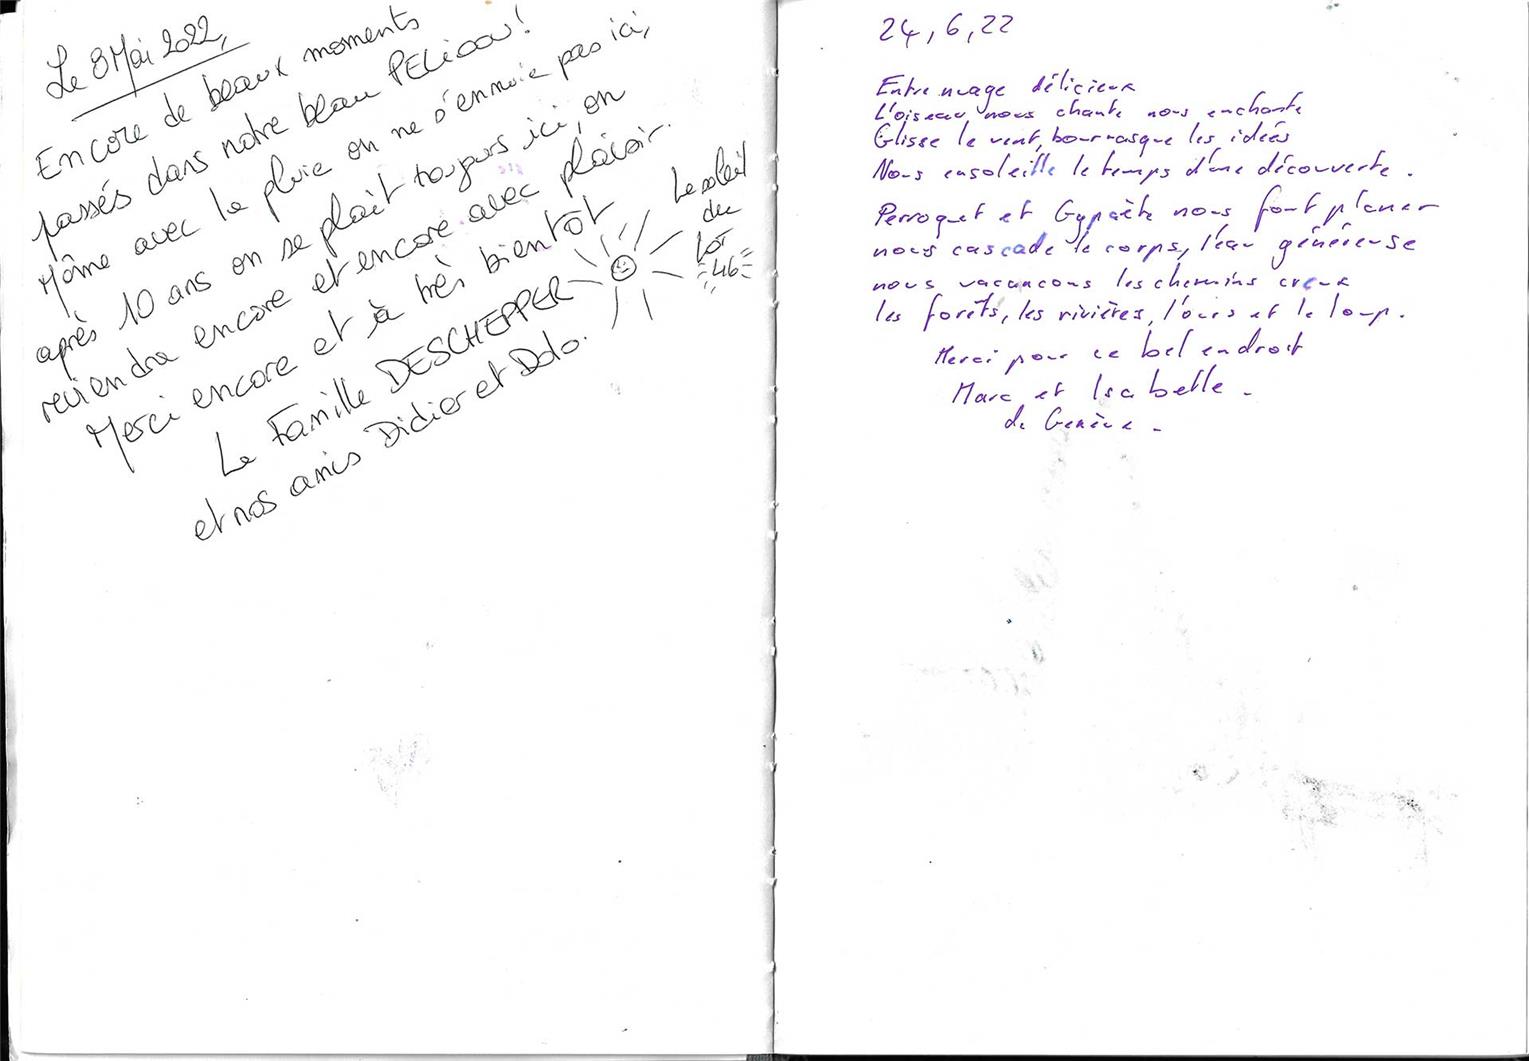 Le 8 Mai 2022,
Encore de beaux moments
passés dans notre beau PELICOU!
Même avec la pluie on ne s'ennuie pas ici,
après 10 ans on se plaît toujours ici, on
reviendra encore et encore avec plaisir.
Merci encore et à très bientôt
La Famille DESCHEPPER
et nos amis Didier et Dolo.
Le soleil
du
Lot
46
24,6,22
Entre nuage délicieux
L'oiseau nous chante nous enchante
Glisse le vent, bourrasque les idées
Nous ensoleille le temps d'une découverte.
Perroquet et Gypaète nous font planer
nous cascade le corps, l'eau généreuse
nous vacancons les chemins creux
les forêts, les rivières, l'ours et le loup.
Merci pour ce bel endroit
Marc et Isabelle.
de Genève.